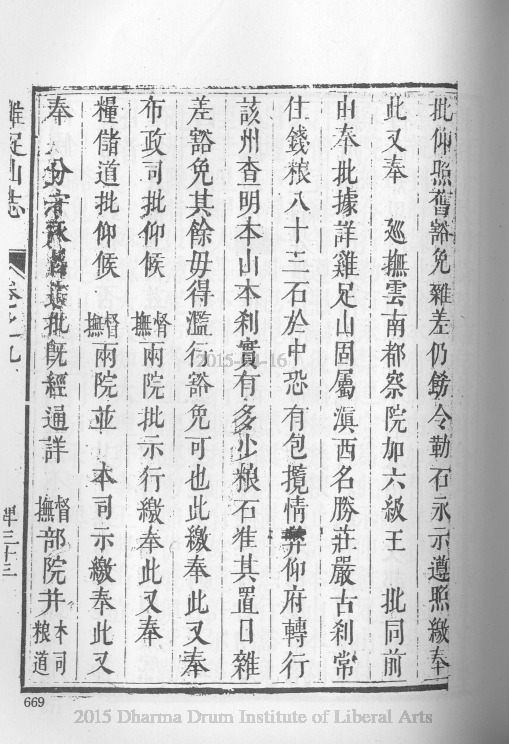 批仰照舊豁免雜差仍飭令勒石永示遵照繳奉
此又奉 巡撫雲南都察院加六級王 批同前
由奉批據詳雞足山固屬滇西名勝莊嚴古刹常
住錢粮八十三石於中恐有包攬情弊仰府轉行
該州查明本山本刹實有多少粮石准其置日雜
差豁免其餘毋得濫行豁免可也此繳奉此又奉
布政司批仰候 督撫兩院批示行繳奉此又奉
糧儲道批仰候 督撫兩院並 本司示繳奉此又
奉 分守永昌道批既經通詳 督撫部院并本司粮道
雞足山志 卷之九
三十三
669
2015-04-16
2015 Dharma Drum Institute of Liberal Arts